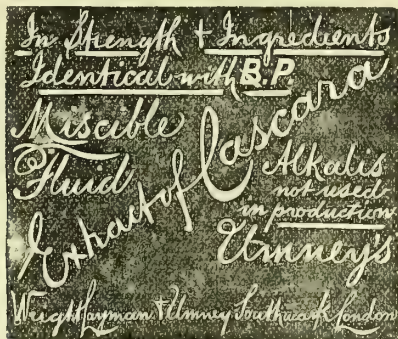 In Strength + Ingredients
Identical with B.P
Miscible
Fluid
Extract of Cascara
Alkalis
not used
in production
Umney's
Wright Layman & Umney Southwark London